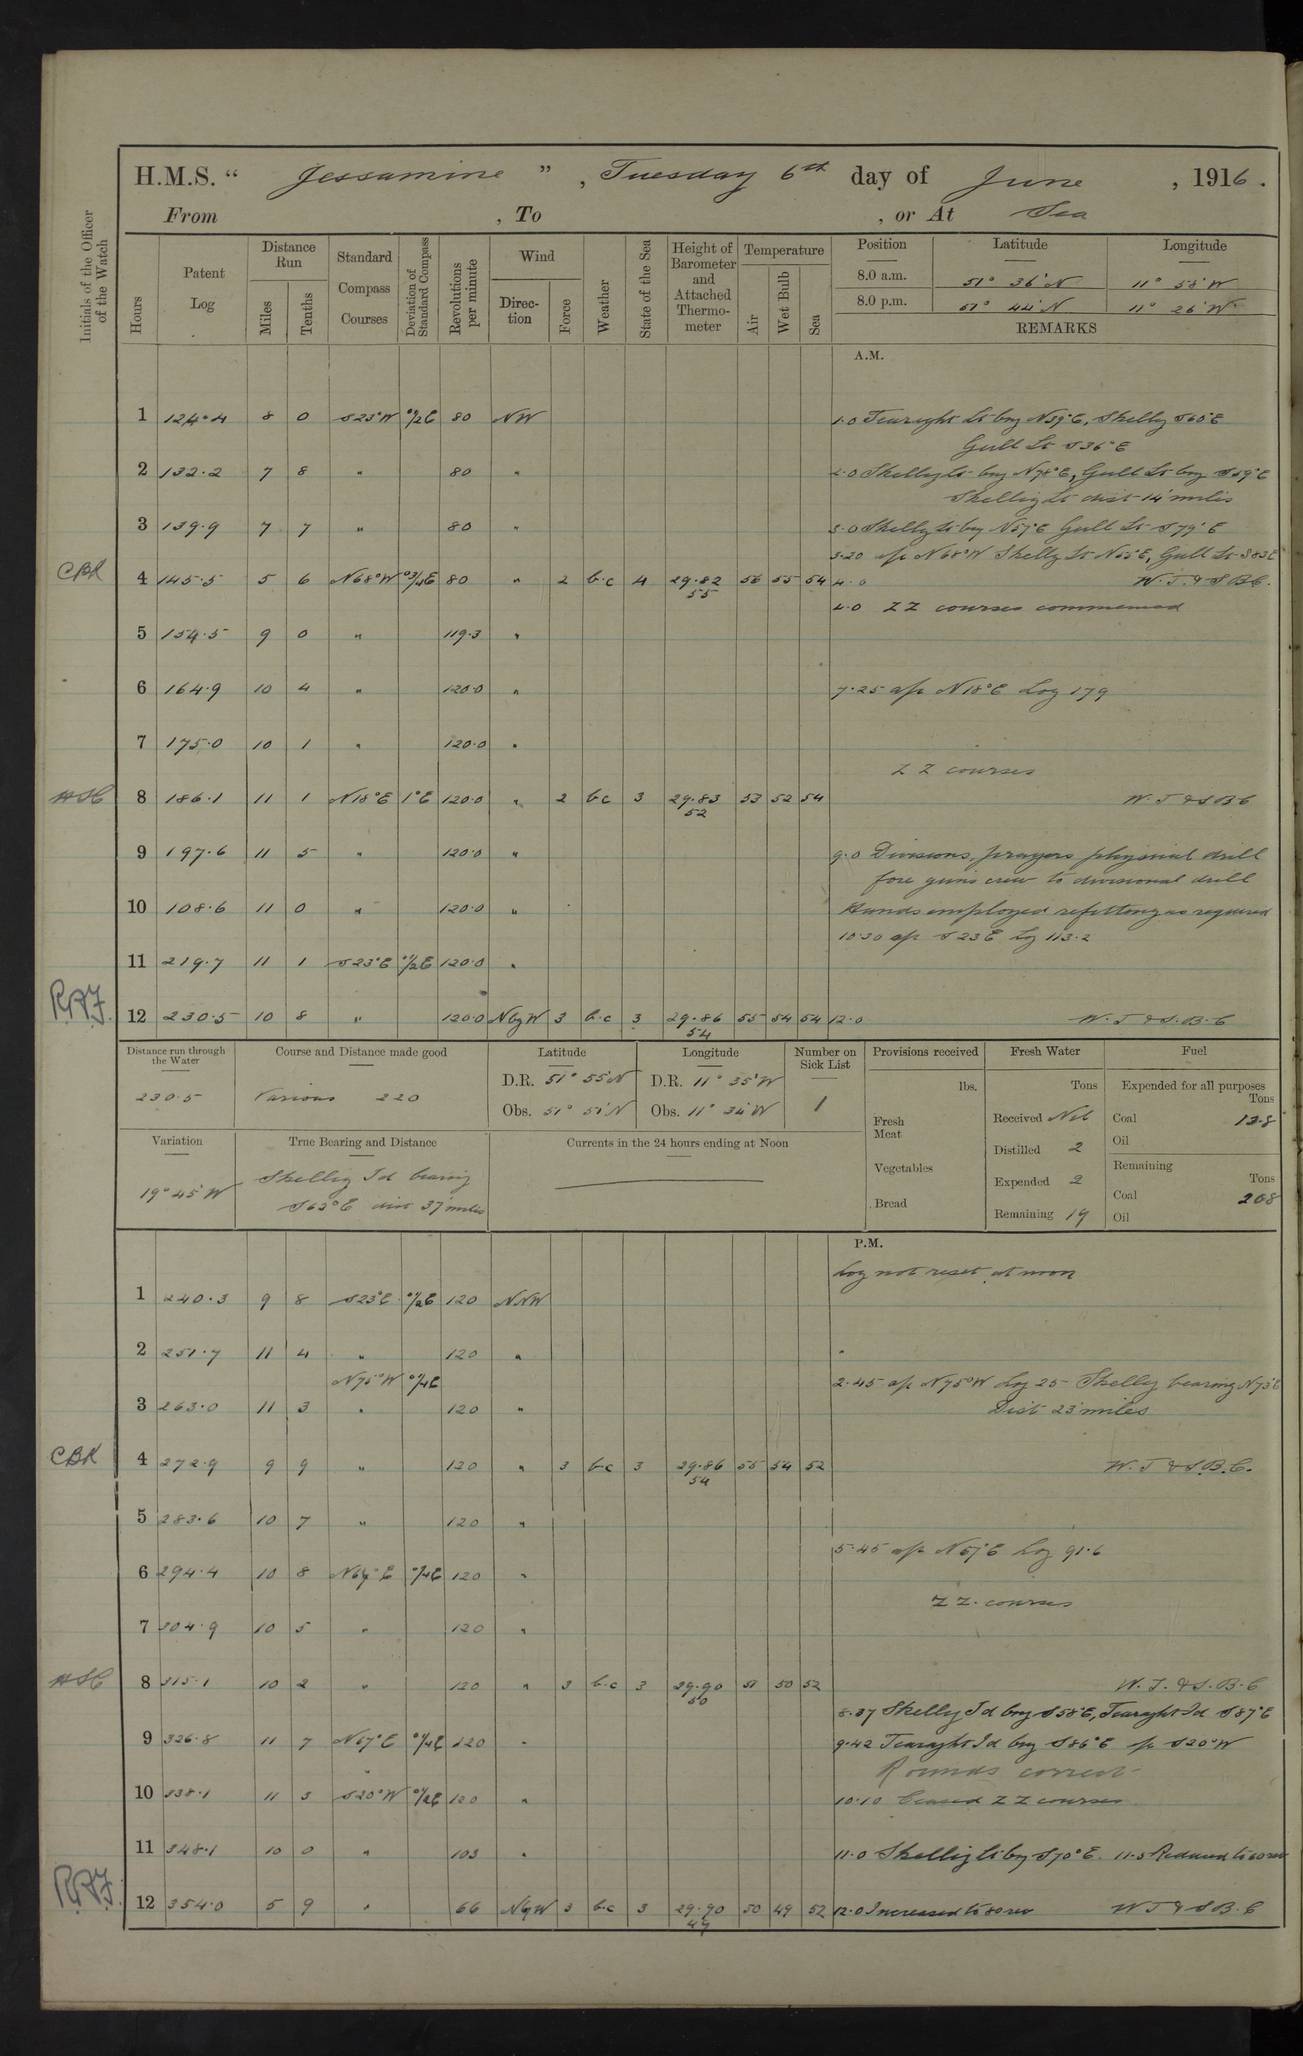 H.M.S. “ Jessamine ” , Tuesday 6th day of June , 1916 .
From , To , or At Sea
Initials of the Officer of the Watch
Hours
Patent Log
Distance Run
Miles
Tenths
Standard Compass Courses
Deviation of Standard Compass
Revolutions per minute
Wind
Direc-tion
Force
Weather
State of the Sea
Height of Barometer and Attached Thermo-meter
Temperature
Air
Wet Bulb
Sea
Position Latitude Longitude
8.0 a.m. 51° 36' N 11° 58' W
8.0 p.m. 51° 44' N 11° 26' W
REMARKS
A.M.
1 124.4 8 0 S23°W 0½E 80 NW 1.0 Tearaght Lt brg N39°E, Skellg S60°E
Gull Lt S36°E
2 132.2 7 8 " 80 " 2.0 Skellig Lt brg N78°E, Gull Lt brg S59°E
Skellig Lt dist 14' miles
3 139.9 7 7 " 80 " 3.0 Skellg Lt brg N57°E Gull Lt S79°E
3.20 a/c N68°W Skellg Lt N55°E, Gull Lt S83E
CBK 4 145.5 5 6 N68°W 0¾E 80 " 2 b.c 4 29.82 56 55 54 4.0 W.T. & S.B.C.
55
4.0 ZZ courses commenced
5 154.5 9 0 " 119.3 "
6 164.9 10 4 " 120.0 " 7.25 a/c N18°E Log 179
7 175.0 10 1 " 120.0 "
ZZ courses
HSC 8 186.1 11 1 N18°E 1°E 120.0 " 2 b.c 3 29.83 53 52 54 W.T & S.B.C
52
9 197.6 11 5 " 120.0 " 9.0 Divisions, prayers physical drill
fore guns crew to divisional drill
10 108.6 11 0 " 120.0 " Hands employed refitting as required
10.30 a/c S23E Lg 113.2
11 219.7 11 1 S23°E 0½E 120.0 "
RAF. 12 230.5 10 8 " 120.0 NbyW 3 b.c 3 29.86 55 54 54 12.0 W.T & S.B.C
54
Distance run through the Water
230.5
Course and Distance made good
Various 220
Latitude
D.R. 51° 55' N
Obs. 51° 51' N
Longitude
D.R. 11° 35' W
Obs. 11° 34' W
Number on Sick List
1
Provisions received
lbs.
Fresh Meat
Vegetables
Bread
Fresh Water
Tons
Received Nil
Distilled 2
Expended 2
Remaining 19
Fuel
Expended for all purposes
Tons
Coal 13.8
Oil
Remaining
Tons
Coal 208
Oil
Variation
19° 45' W
True Bearing and Distance
Skellig Id bearing
S63°E dist 37' miles
Currents in the 24 hours ending at Noon
P.M.
Log not reset at noon
1 240.3 9 8 S23°E 0½E 120 NNW
2 251.7 11 4 " 120 "
N75°W 0¼E 2.45 a/c N75°W Log 25- Skellg bearing N73°E
3 263.0 11 3 " 120 " Dist 23' miles
CBK 4 272.9 9 9 " 120 " 3 b.c 3 29.86 55 54 52 W.T & S.B.C.
54
5 283.6 10 7 " 120 "
5.45 a/c N67°E Log 91.6
6 294.4 10 8 N67°E 0¼E 120 "
ZZ. courses
7 304.9 10 5 " 120 "
HSC 8 315.1 10 2 " 120 " 3 b.c 3 29.90 51 50 52 W.T. & S.B.C
50
8.37 Skellg Id brg S58°E, Tearaght Id S87°E
9 326.8 11 7 N67°E 0¼E 120 " 9.42 Tearaght Id brg S86°E a/c S20°W
Rounds correct
10 338.1 11 3 S20°W 0½E 120 " 10.10 Ceased ZZ courses
11 348.1 10 0 " 103 " 11.0 Skellig Lt brg S70°E. 11.5 Reduced to 60 rev
RAF. 12 354.0 5 9 " 66 NbyW 3 b.c 3 29.90 50 49 52 12.0 Increased to 80 rev W T & S B.C
49